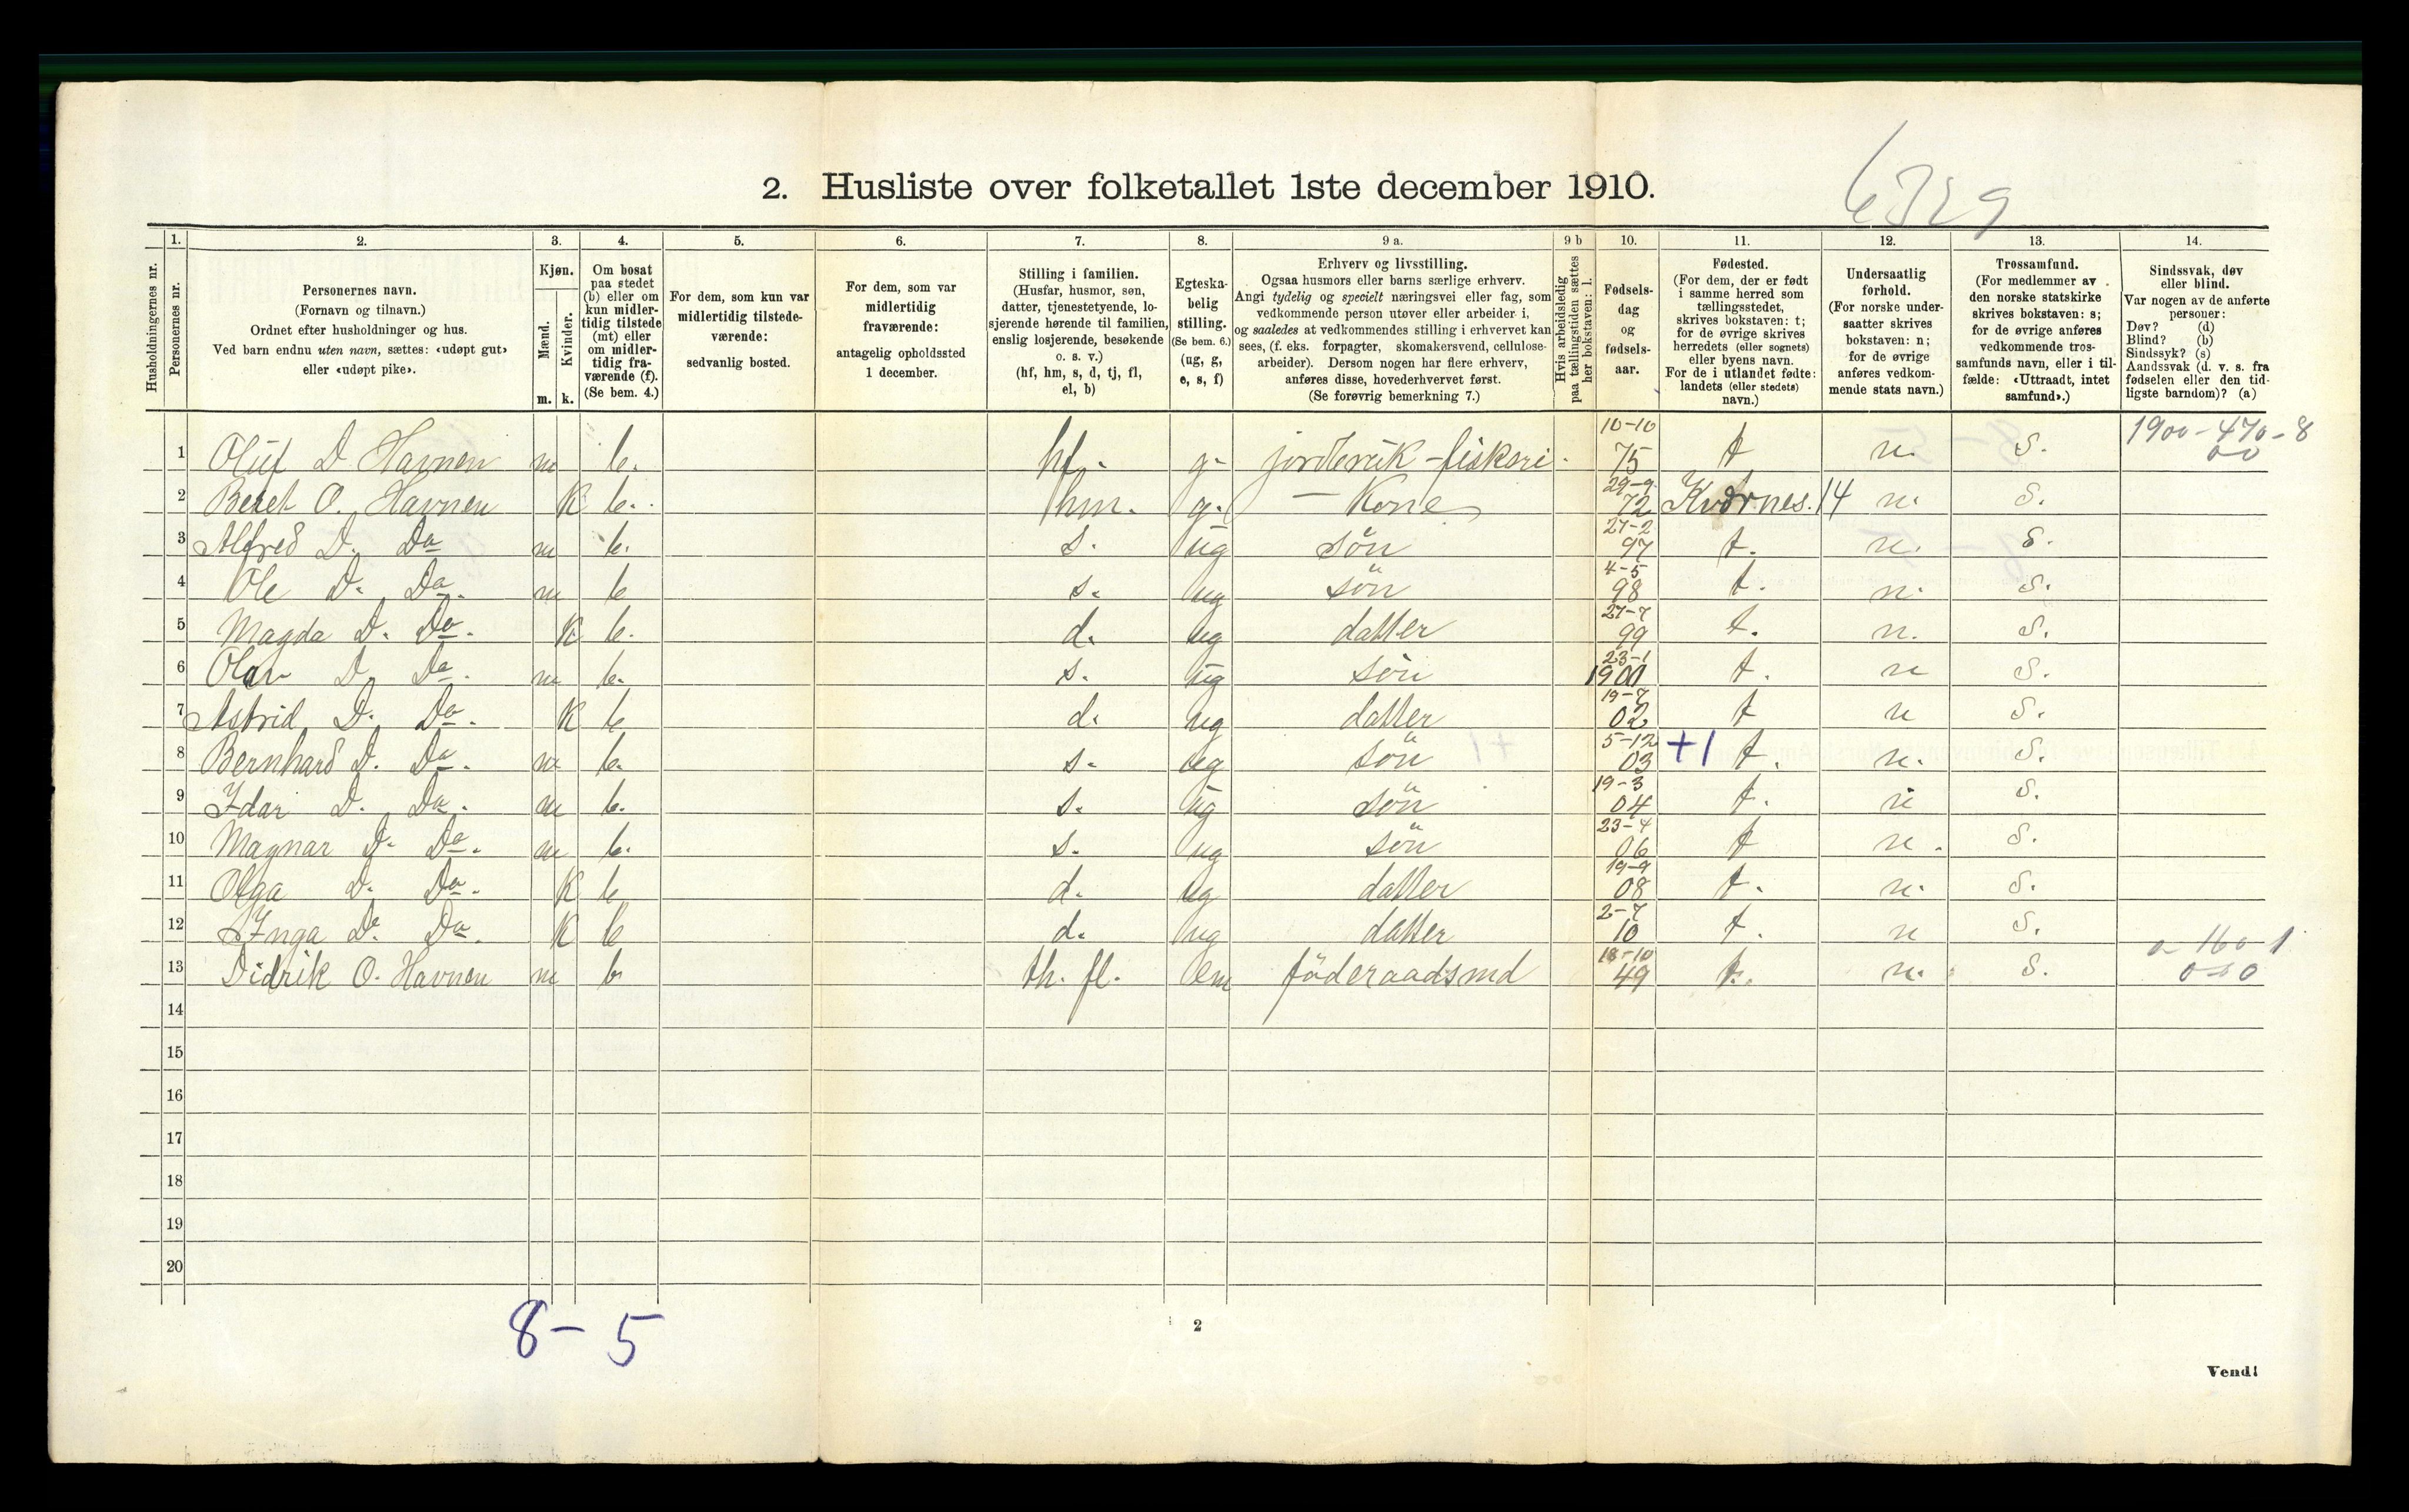 6329
2. Husliste over folketallet 1ste december 1910.
Husholdningernes nr.
1. 2. 3. 4. 5. 6. 7. 8. 9 a. 9 b 10. 11. 12. 13. 14.
Personernes nr.
Personernes navn.
(Fornavn og tilnavn.)
Ordnet efter husholdninger og hus.
Ved barn endnu uten navn, sættes: «udøpt gut»
eller «udøpt pike».
Kjøn.
Mænd.
Kvinder.
m. k.
Om bosat
paa stedet
(b) eller om
kun midler-
tidig tilstede
(mt) eller
om midler-
tidig fra-
værende (f).
(Se bem. 4.)
For dem, som kun var
midlertidig tilstede-
værende:
sedvanlig bosted.
For dem, som var
midlertidig
fraværende:
antagelig opholdssted
1 december.
Stilling i familien.
(Husfar, husmor, søn,
datter, tjenestetyende, lo-
sjerende hørende til familien,
enslig losjerende, besøkende
o. s. v.)
(hf, hm, s, d, tj, fl,
el, b)
Egteska-
belig
stilling.
(Se bem. 6.)
(ug, g,
e, s, f)
Erhverv og livsstilling.
Ogsaa husmors eller barns særlige erhverv.
Angi tydelig og specielt næringsvei eller fag, som
vedkommende person utøver eller arbeider i,
og saaledes at vedkommendes stilling i erhvervet kan
sees, (f. eks. forpagter, skomakersvend, cellulose-
arbeider). Dersom nogen har flere erhverv,
anføres disse, hovederhvervet først.
(Se forøvrig bemerkning 7.)
Hvis arbeidsledig
paa tællingstiden sættes
her bokstaven: l.
Fødsels-
dag
og
fødsels-
aar.
Fødested.
(For dem, der er født
i samme herred som
tællingsstedet,
skrives bokstaven: t;
for de øvrige skrives
herredets (eller sognets)
eller byens navn.
For de i utlandet fødte:
landets (eller stedets)
navn.)
Undersaatlig
forhold.
(For norske under-
saatter skrives
bokstaven: n;
for de øvrige
anføres vedkom-
mende stats navn.)
Trossamfund.
(For medlemmer av
den norske statskirke
skrives bokstaven: s;
for de øvrige anføres
vedkommende tros-
samfunds navn, eller i til-
fælde: «Uttraadt, intet
samfund».)
Sindssvak, døv
eller blind.
Var nogen av de anførte
personer:
Døv? (d)
Blind? (b)
Sindssyk? (s)
Aandssvak (d. v. s. fra
fødselen eller den tid-
ligste barndom)? (a)
1 Oluf D Havnen m b. hf. g. jordbruk - fiskeri. 10-10 75 t n. S. 1900-470-8
2 Beret O. Havnen K b. hm. g. - Kone 29-9 72 Kværnes. 14 n. S.
3 Alfred D. Do m b. s. ug sön 27-2 97 t. n. S.
4 Ole D. Do. m b s. ug sön 4-5 98 t. n. S.
5 Magda D. Do. K b. d. ug datter 27-7 99 t. n. S.
6 Olav D. Do. m b. s. ug sön 23-1 1901 t. n S.
7 Astrid D. Do. K b d. ug datter 19-7 02 t n S.
8 Bernhard D. Do. m b. s. ug sön 5-12 03 +1 t. n. S.
9 Idar D. Do. m b. s. ug sön 19-3 04 t. n S.
10 Magnar D. Do. m b. s. ug sön 23-4 06 t n. S.
11 Olga D. Do. K b d. ug datter 19-9 08 t. n. S.
12 Inga D. Do. K b d. ug datter 2-7 10 t. n S.
13 Didrik O. Havnen m b. th. fl. em föderaadsmd 18-10 49 t. n. S. 0-160-1
14
15
16
17
18
19
20
8-5
2
Vend!